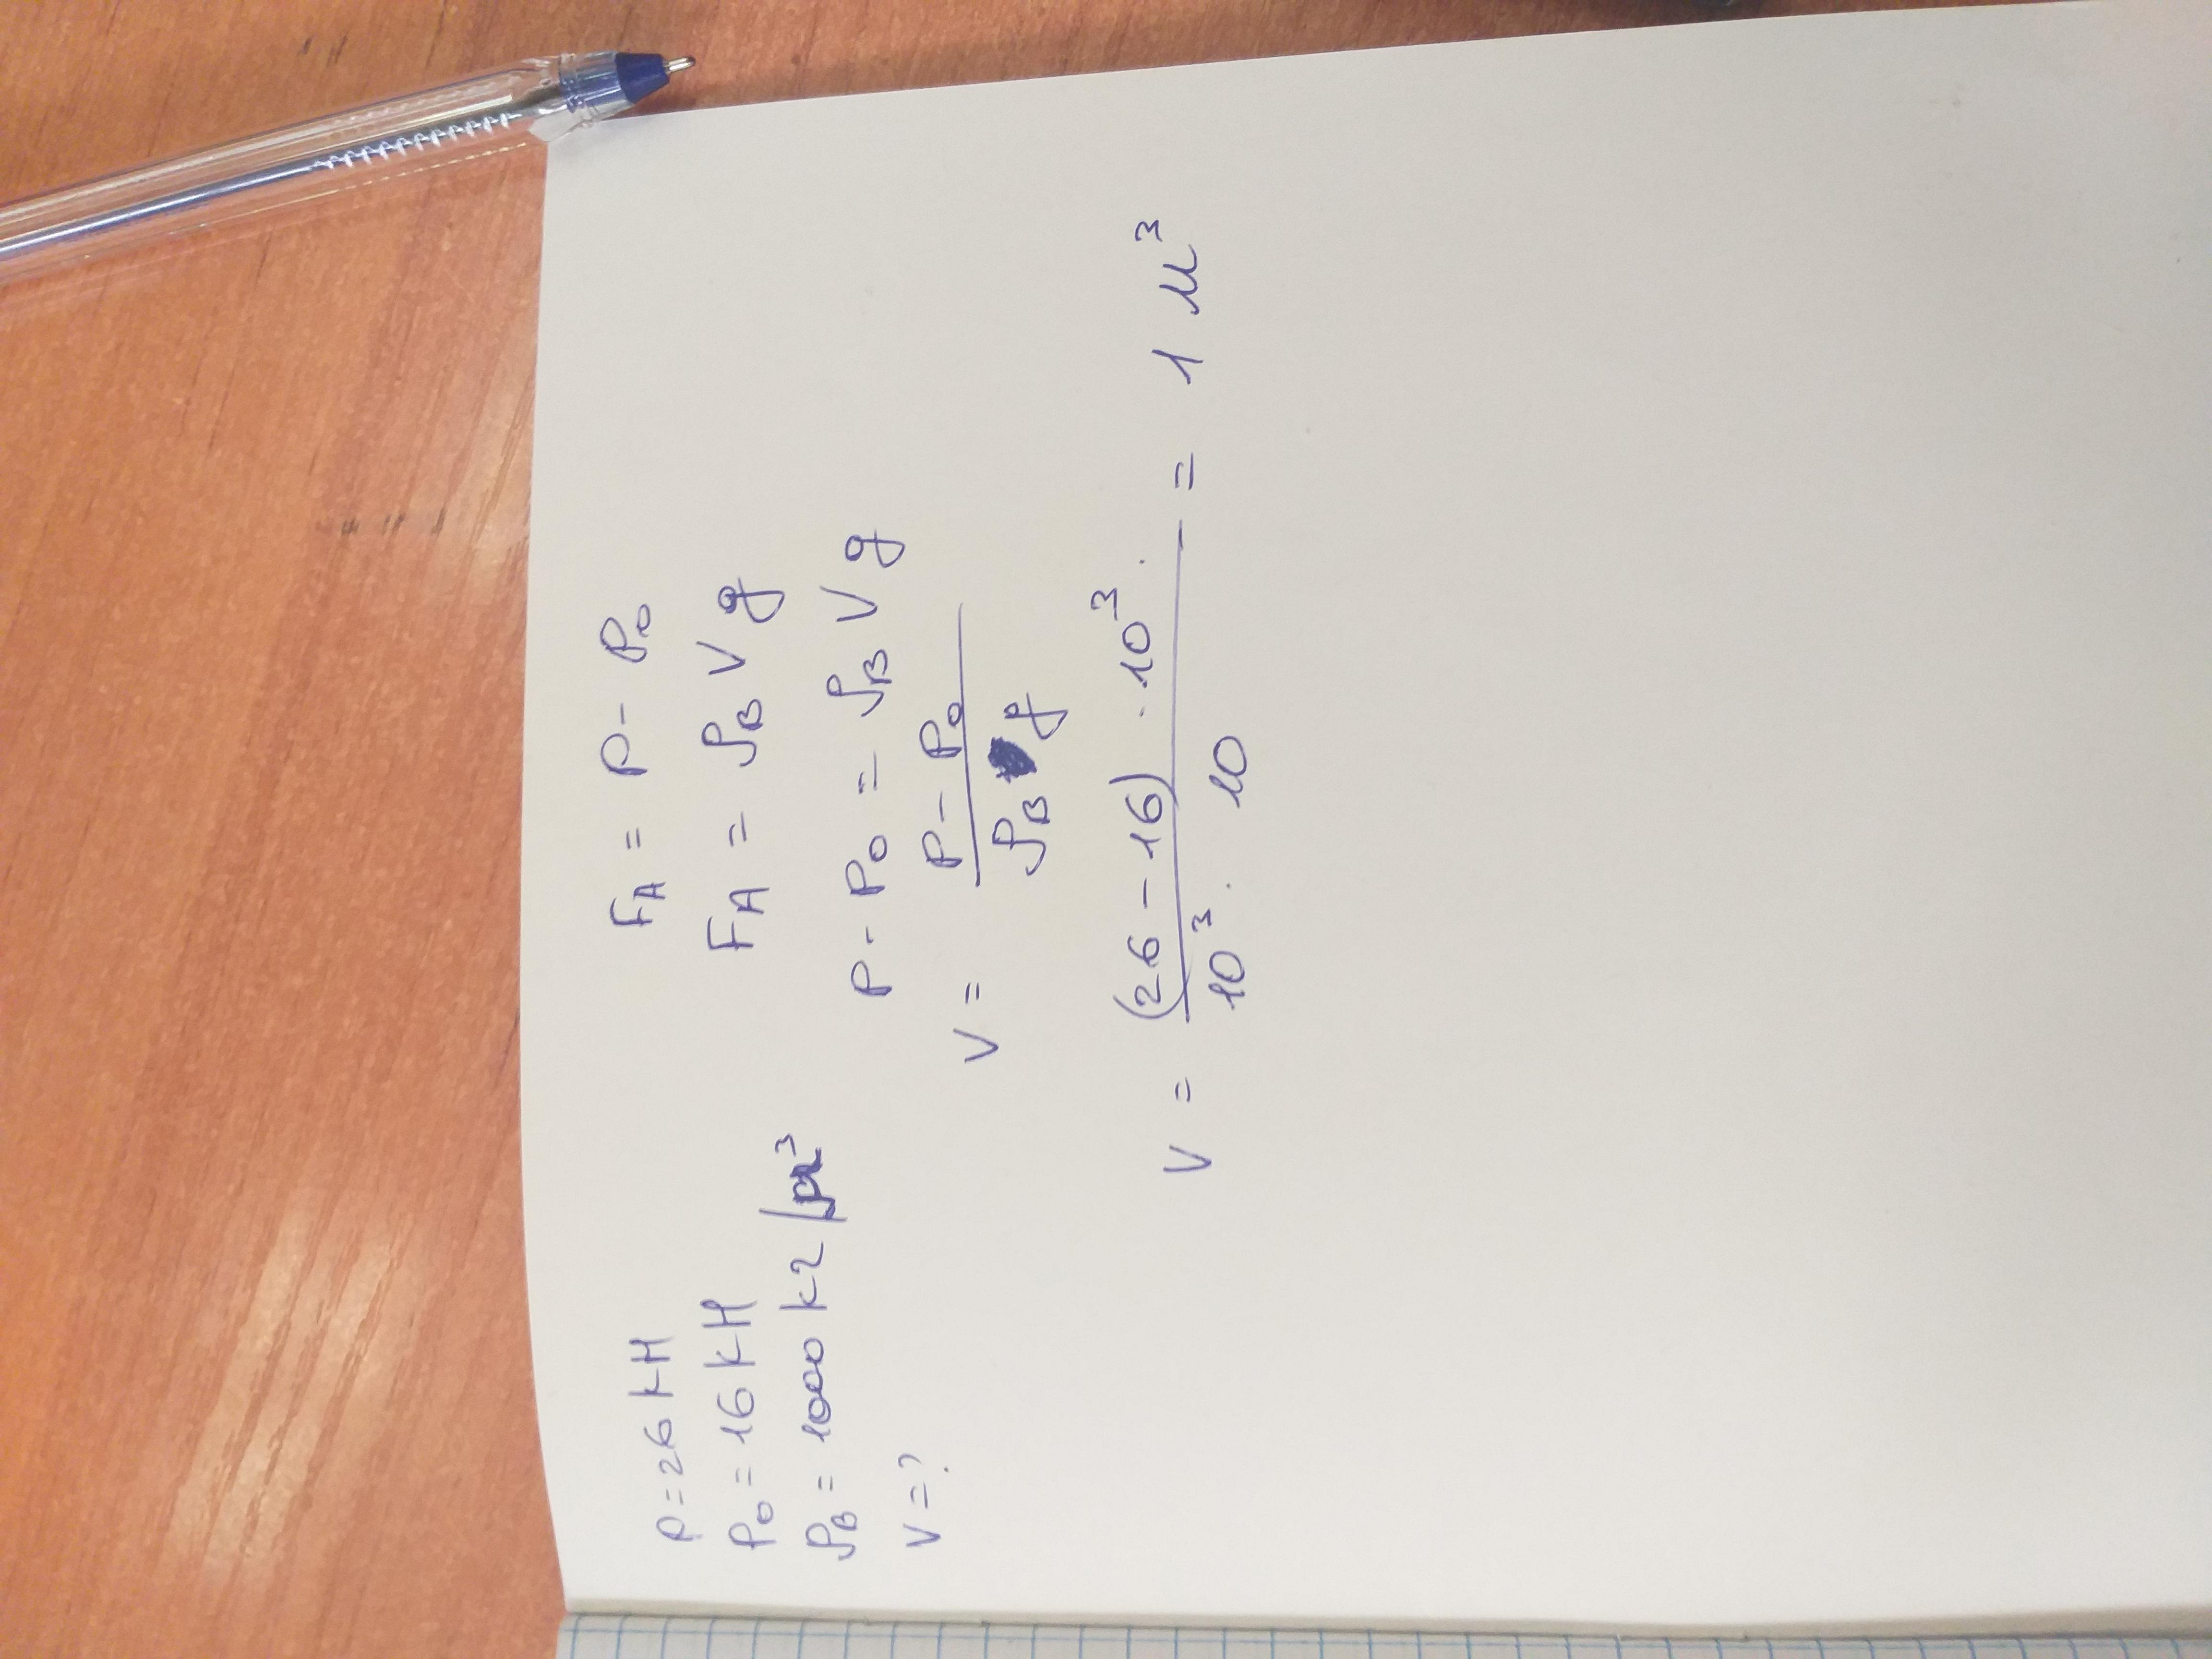 P = 26 кН
P₀ = 16 кН
ρв = 1000 кг/м³
V = ?
Fᴀ = P - P₀
Fᴀ = ρв V g
P - P₀ = ρв V g
V = (P - P₀) / (ρв g)
V = ((26 - 16) · 10³ ·) / (10³ · 10) = 1 м³